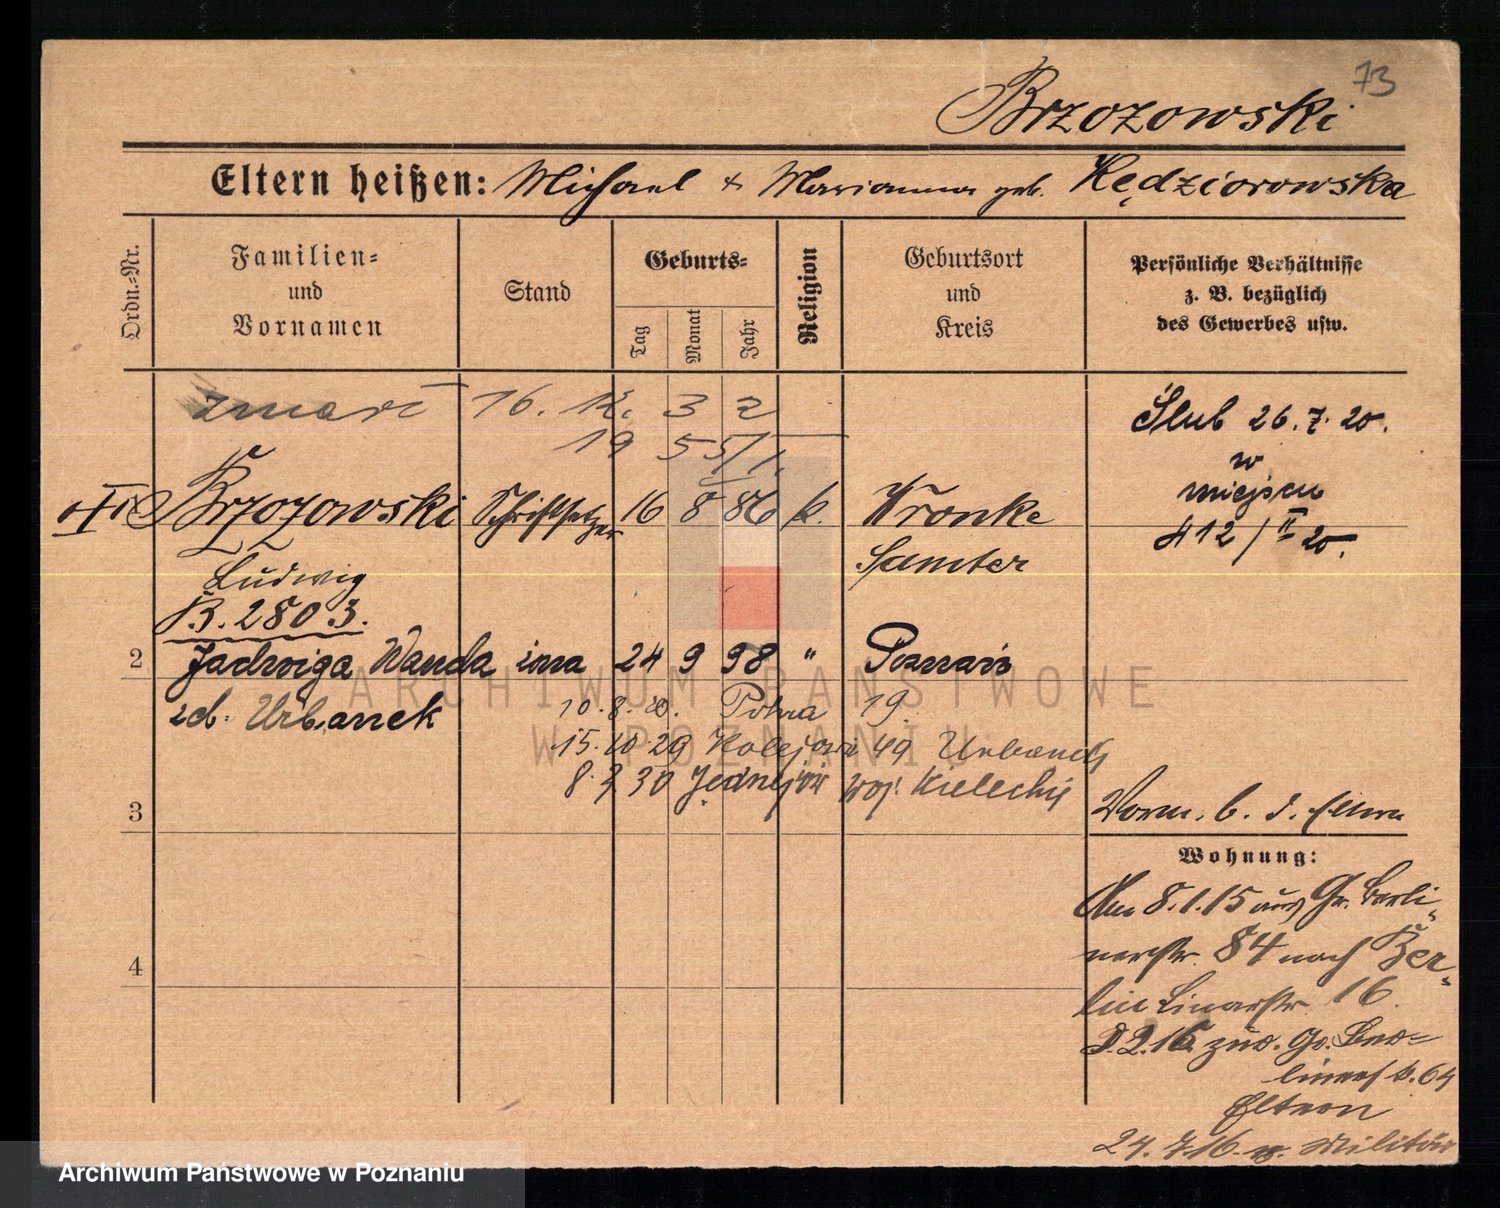 73
Brzozowski
Eltern heißen: Michael & Marianna geb. Kędziorowska
Ordn.-Nr.
Familien-
und
Vornamen
Stand
Geburts-
Tag
Monat
Jahr
Religion
Geburtsort
und
Kreis
Persönliche Verhältnisse
z. B. bezüglich
des Gewerbes usw.
zmarł 16. 12. 32
19 55/1.
Ślub 26.7.20.
w
miejscu
412/II 20.
Brzozowski Schriftsetzer 16 8 86 k. Wronke
Samter
Ludwig
B. 2803.
2 Jadwiga Wanda żona 24 9 98 " Poznań
zd. Urbanek
10.8.20. Polna 19.
15.10.29 Kolejowa 49 Urbanek
8.3.30 Jędrzejów woj. Kieleckie
3
Vorm. b. d. Eltern
Wohnung:
Am 8.1.15 aus Gr. Berli-
nerstr. 84 nach Ber-
lin Linienstr. 16.
2.16 zur. Gr. Ber-
linerstr. 64
Eltern
4
24.7.16. z. Militär
ARCHIWUM PAŃSTWOWE
W POZNANIU
Archiwum Państwowe w Poznaniu